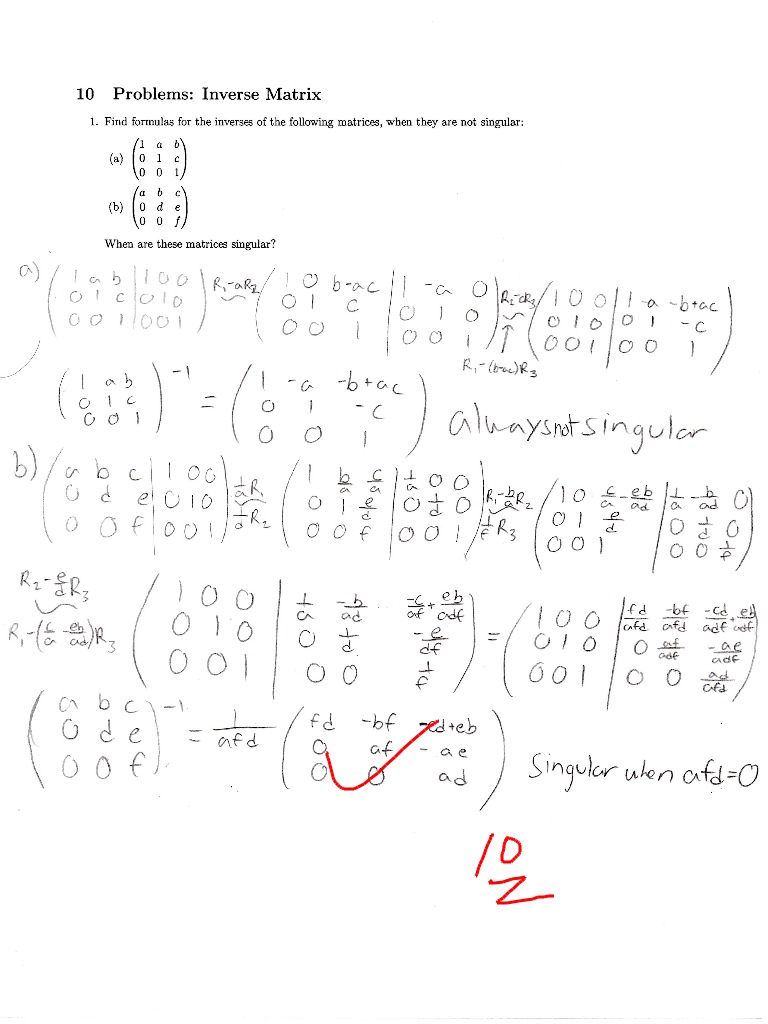 10 Problems: Inverse Matrix
1. Find formulas for the inverses of the following matrices, when they are not singular:
(a) (1 a b
0 1 c
0 0 1)
(b) (a b c
0 d e
0 0 f)
When are these matrices singular?
a) (1 a b | 1 0 0
0 1 c | 0 1 0
0 0 1 | 0 0 1) R₁-aR₂ (1 0 b-ac | 1 -a 0
0 1 c | 0 1 0
0 0 1 | 0 0 1) R₂-cR₃ (1 0 0 | 1 -a -b+ac
0 1 0 | 0 1 -c
0 0 1 | 0 0 1)
↑ R₁-(b-ac)R₃
(1 a b
0 1 c
0 0 1)⁻¹ = (1 -a -b+ac
0 1 -c
0 0 1) always not singular
b) (a b c | 1 0 0
0 d e | 0 1 0
0 0 f | 0 0 1) 1/a R 1/d R₂ (1 b/a c/a | 1/a 0 0
0 1 e/d | 0 1/d 0
0 0 f | 0 0 1) R₁-b/a R₂ 1/f R₃ (1 0 c/a-eb/ad | 1/a -b/ad 0
0 1 e/d | 0 1/d 0
0 0 1 | 0 0 1/f)
R₂-e/d R₃
R₁-(c/a-eb/ad)R₃ (1 0 0 | 1/a -b/ad -c/af+eb/adf
0 1 0 | 0 1/d -e/df
0 0 1 | 0 0 1/f) = (1 0 0 | fd/afd -bf/afd -cd/adf+eb/adf
0 1 0 | 0 af/adf -ae/adf
0 0 1 | 0 0 ad/afd)
(a b c
0 d e
0 0 f)⁻¹ = 1/afd (fd -bf -cd+eb
0 af -ae
0 0 ad) Singular when afd=0
10
2